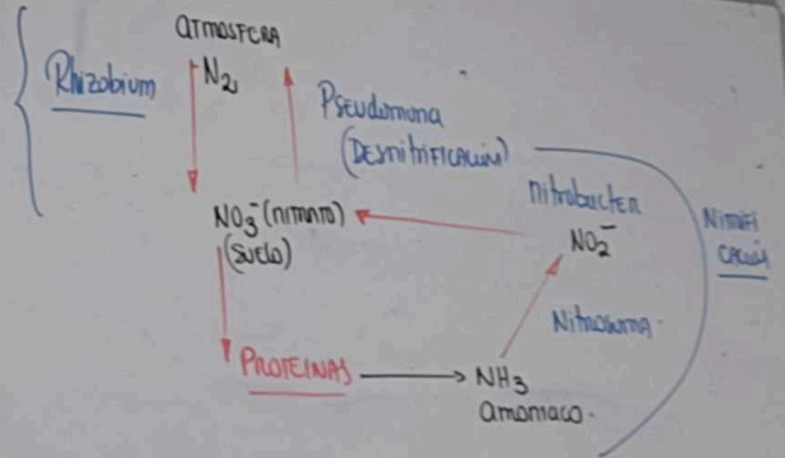 ATMOSFERA
Rhizobium
N₂
Pseudomona
(DESNITRIFICACIÓN)
nitrobacter
NO₃⁻ (NITRATO)
(SUELO)
NO₂⁻
NITRIFI
CACIÓN
Nitrosoma
PROTEINAS
NH₃
amoniaco